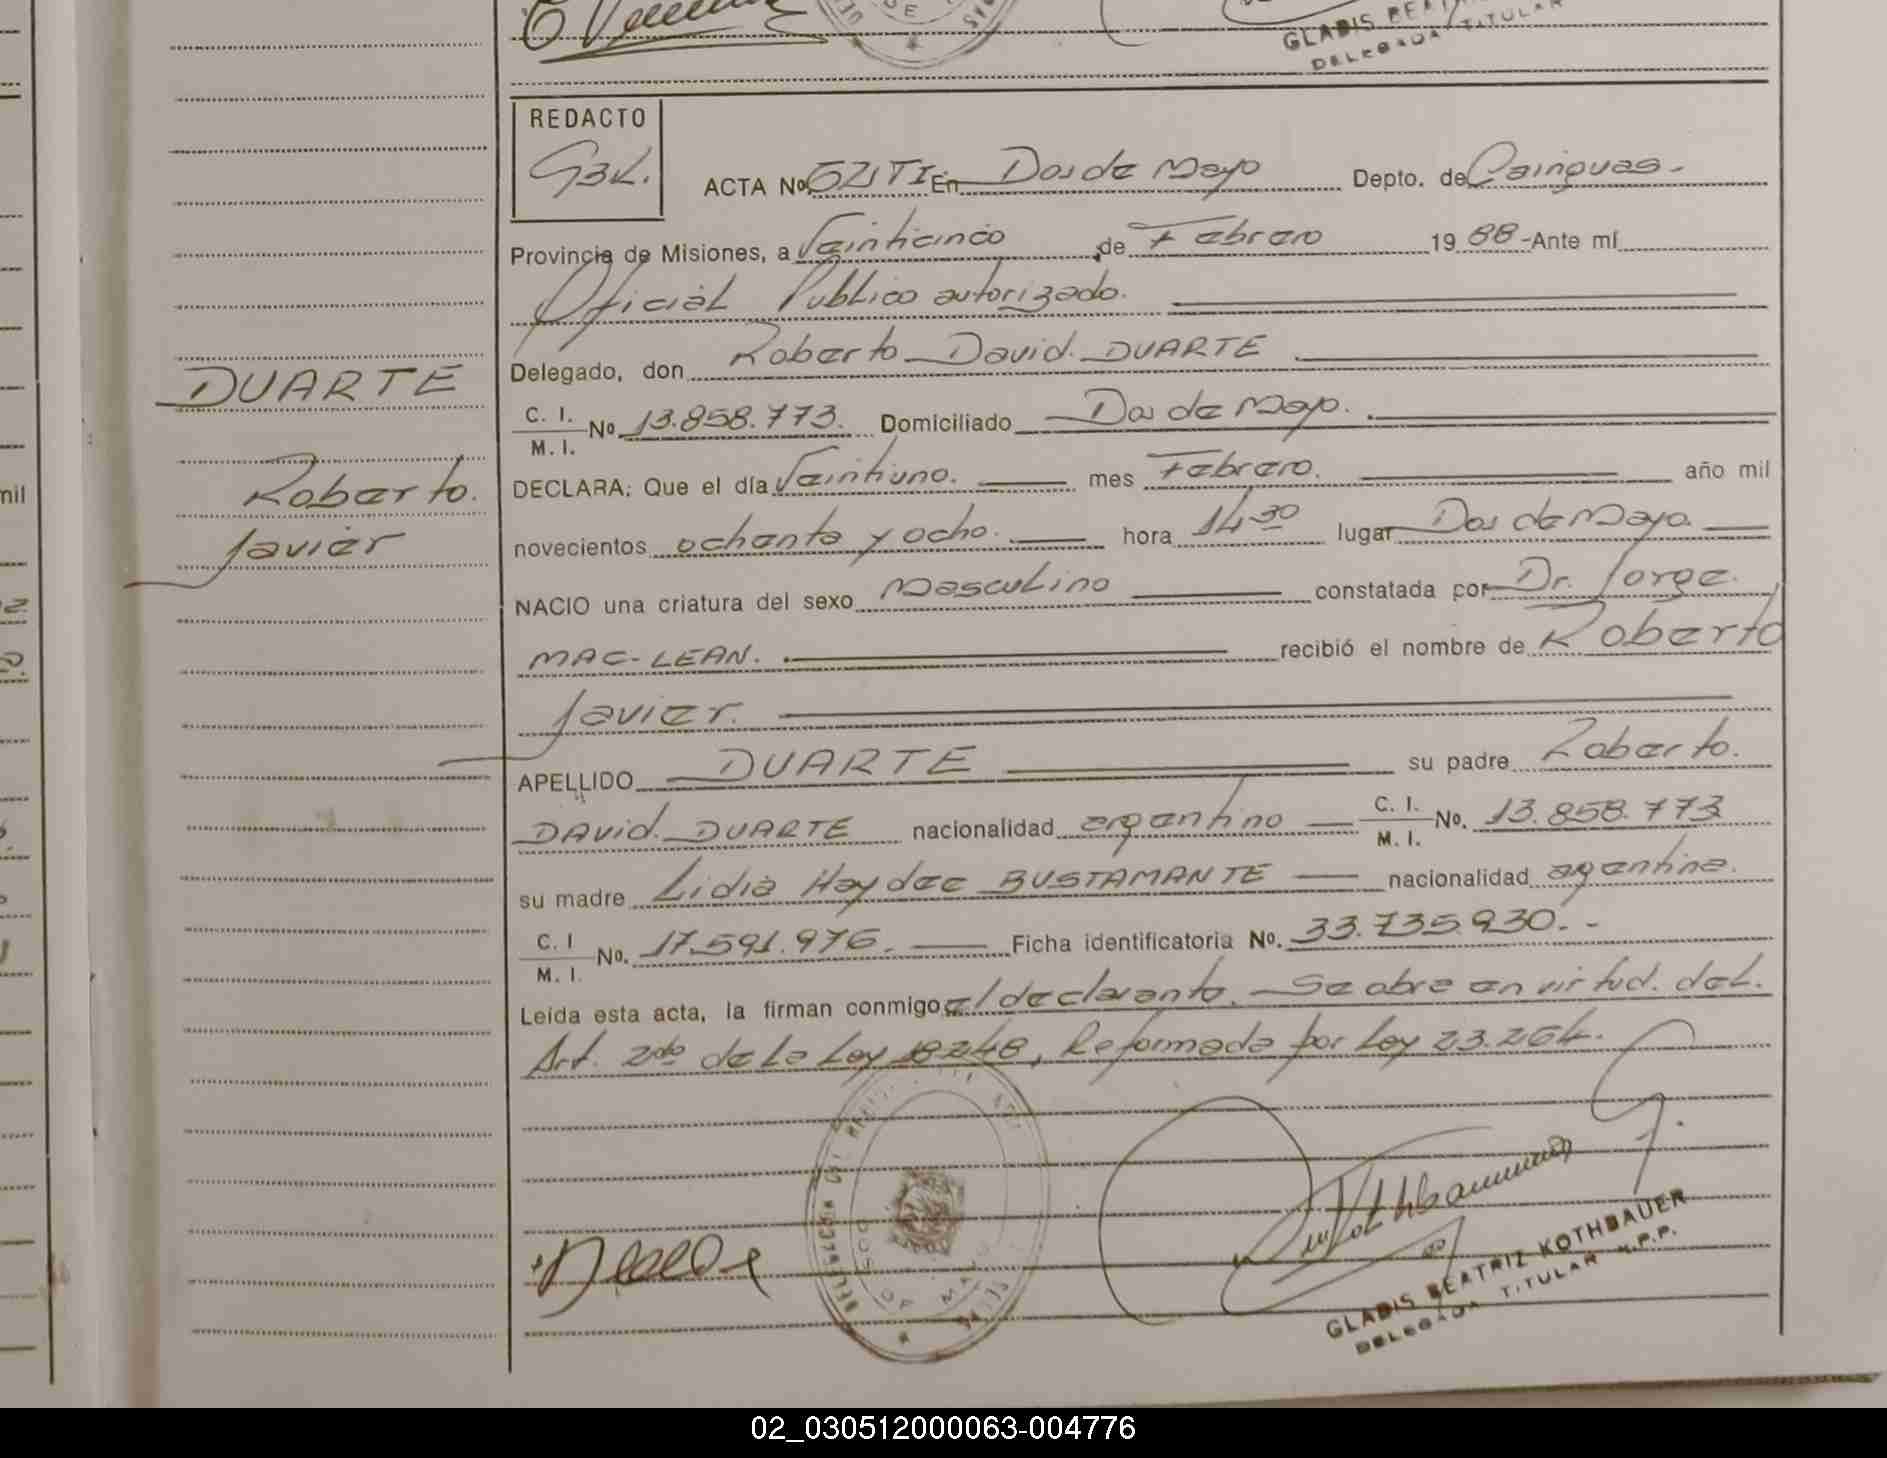 GLADIS
DELEGADA TITULAR
REDACTO
GBK.
ACTA Nº 62/TI En Dos de Mayo Depto. de Cainguas.-
Provincia de Misiones, a Veinticinco de Febrero 19 88 -Ante mí
Oficial Publico autorizado.
Delegado, don Roberto David DUARTE
C. I.
M. I. Nº 13.858.773. Domiciliado Dos de Mayo.
DECLARA: Que el día Veintiuno. mes Febrero. año mil
novecientos ochenta y ocho. hora 14 30 lugar Dos de Mayo.
NACIO una criatura del sexo Masculino constatada por Dr. Jorge.
MAC-LEAN. recibió el nombre de Roberto
Javier.
APELLIDO DUARTE su padre Roberto.
DAVID. DUARTE nacionalidad argentino C. I. M. I. Nº. 13.858.773
su madre Lidia Haydee BUSTAMANTE nacionalidad argentina.
C. I M. I. Nº. 17.591.976. Ficha identificatoria Nº. 33.735.930.-
Leída esta acta, la firman conmigo el declarante. Se abre en virtud. del.
Art. 2do de la Ley 18248, Reformada por Ley 23.264.
GLADIS BEATRIZ KOTHBAUER
DELEGADA TITULAR R.P.P.
DUARTE
Roberto.
Javier
mil
02_030512000063-004776